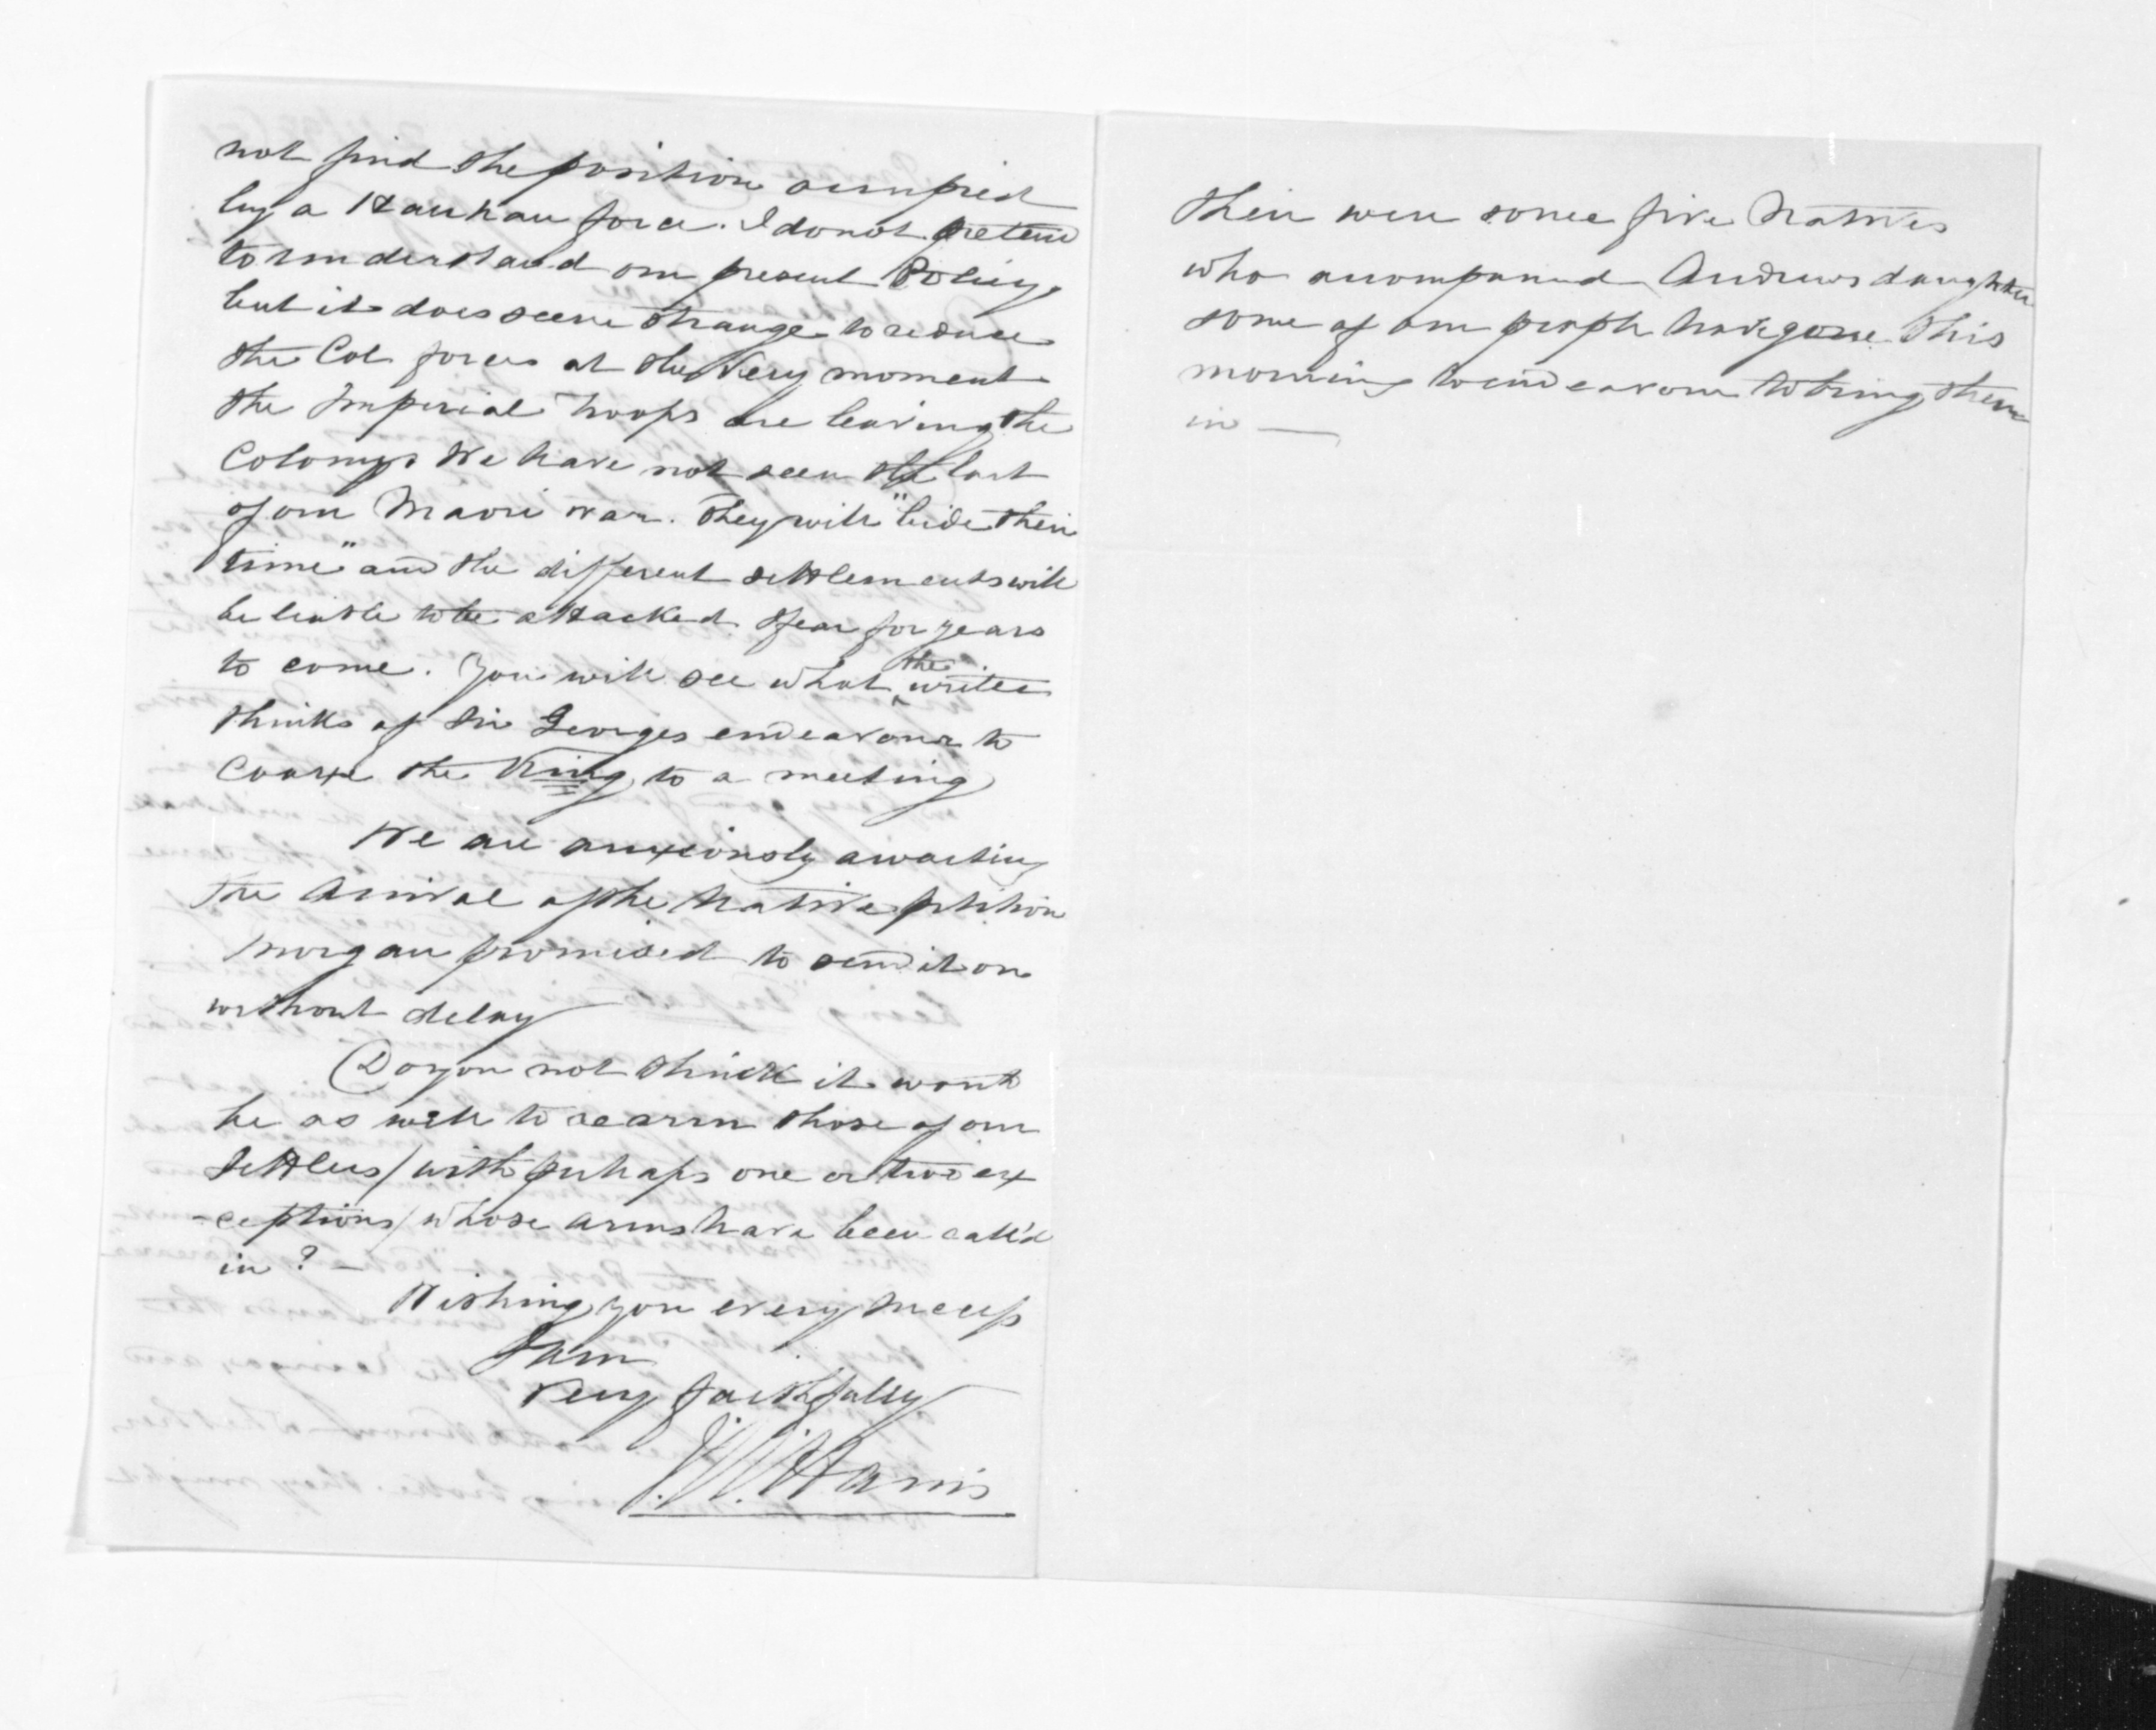 not find the position occupied
by a Hauhau force. I do not pretend
to understand our present Policy,
but it does seem strange to reduce
the Col forces at the very moment
the Imperial troops are leaving the
Colony. We have not seen the last
of our Maori War. They will "bide their
time" and the different settlements will
be liable to be attacked I fear for years
to come. You will see what the writer
thinks of Sir Georges endeavour to
coaxe the King to a meeting
We are anxiously awaiting
the arrival of the Native petition
Morgan promised to send it on
without delay
Do you not think it would
be as well to rearm those of our
Settlers / with perhaps one or two ex
-ceptions / whose arms have been call'd
in? —
Wishing you every success
I am
Very faithfully
J. W. Harris
Their were some five Natives
who accompanied Andrews daughter
some of our people have gone this
morning to endeavour to bring them
in —